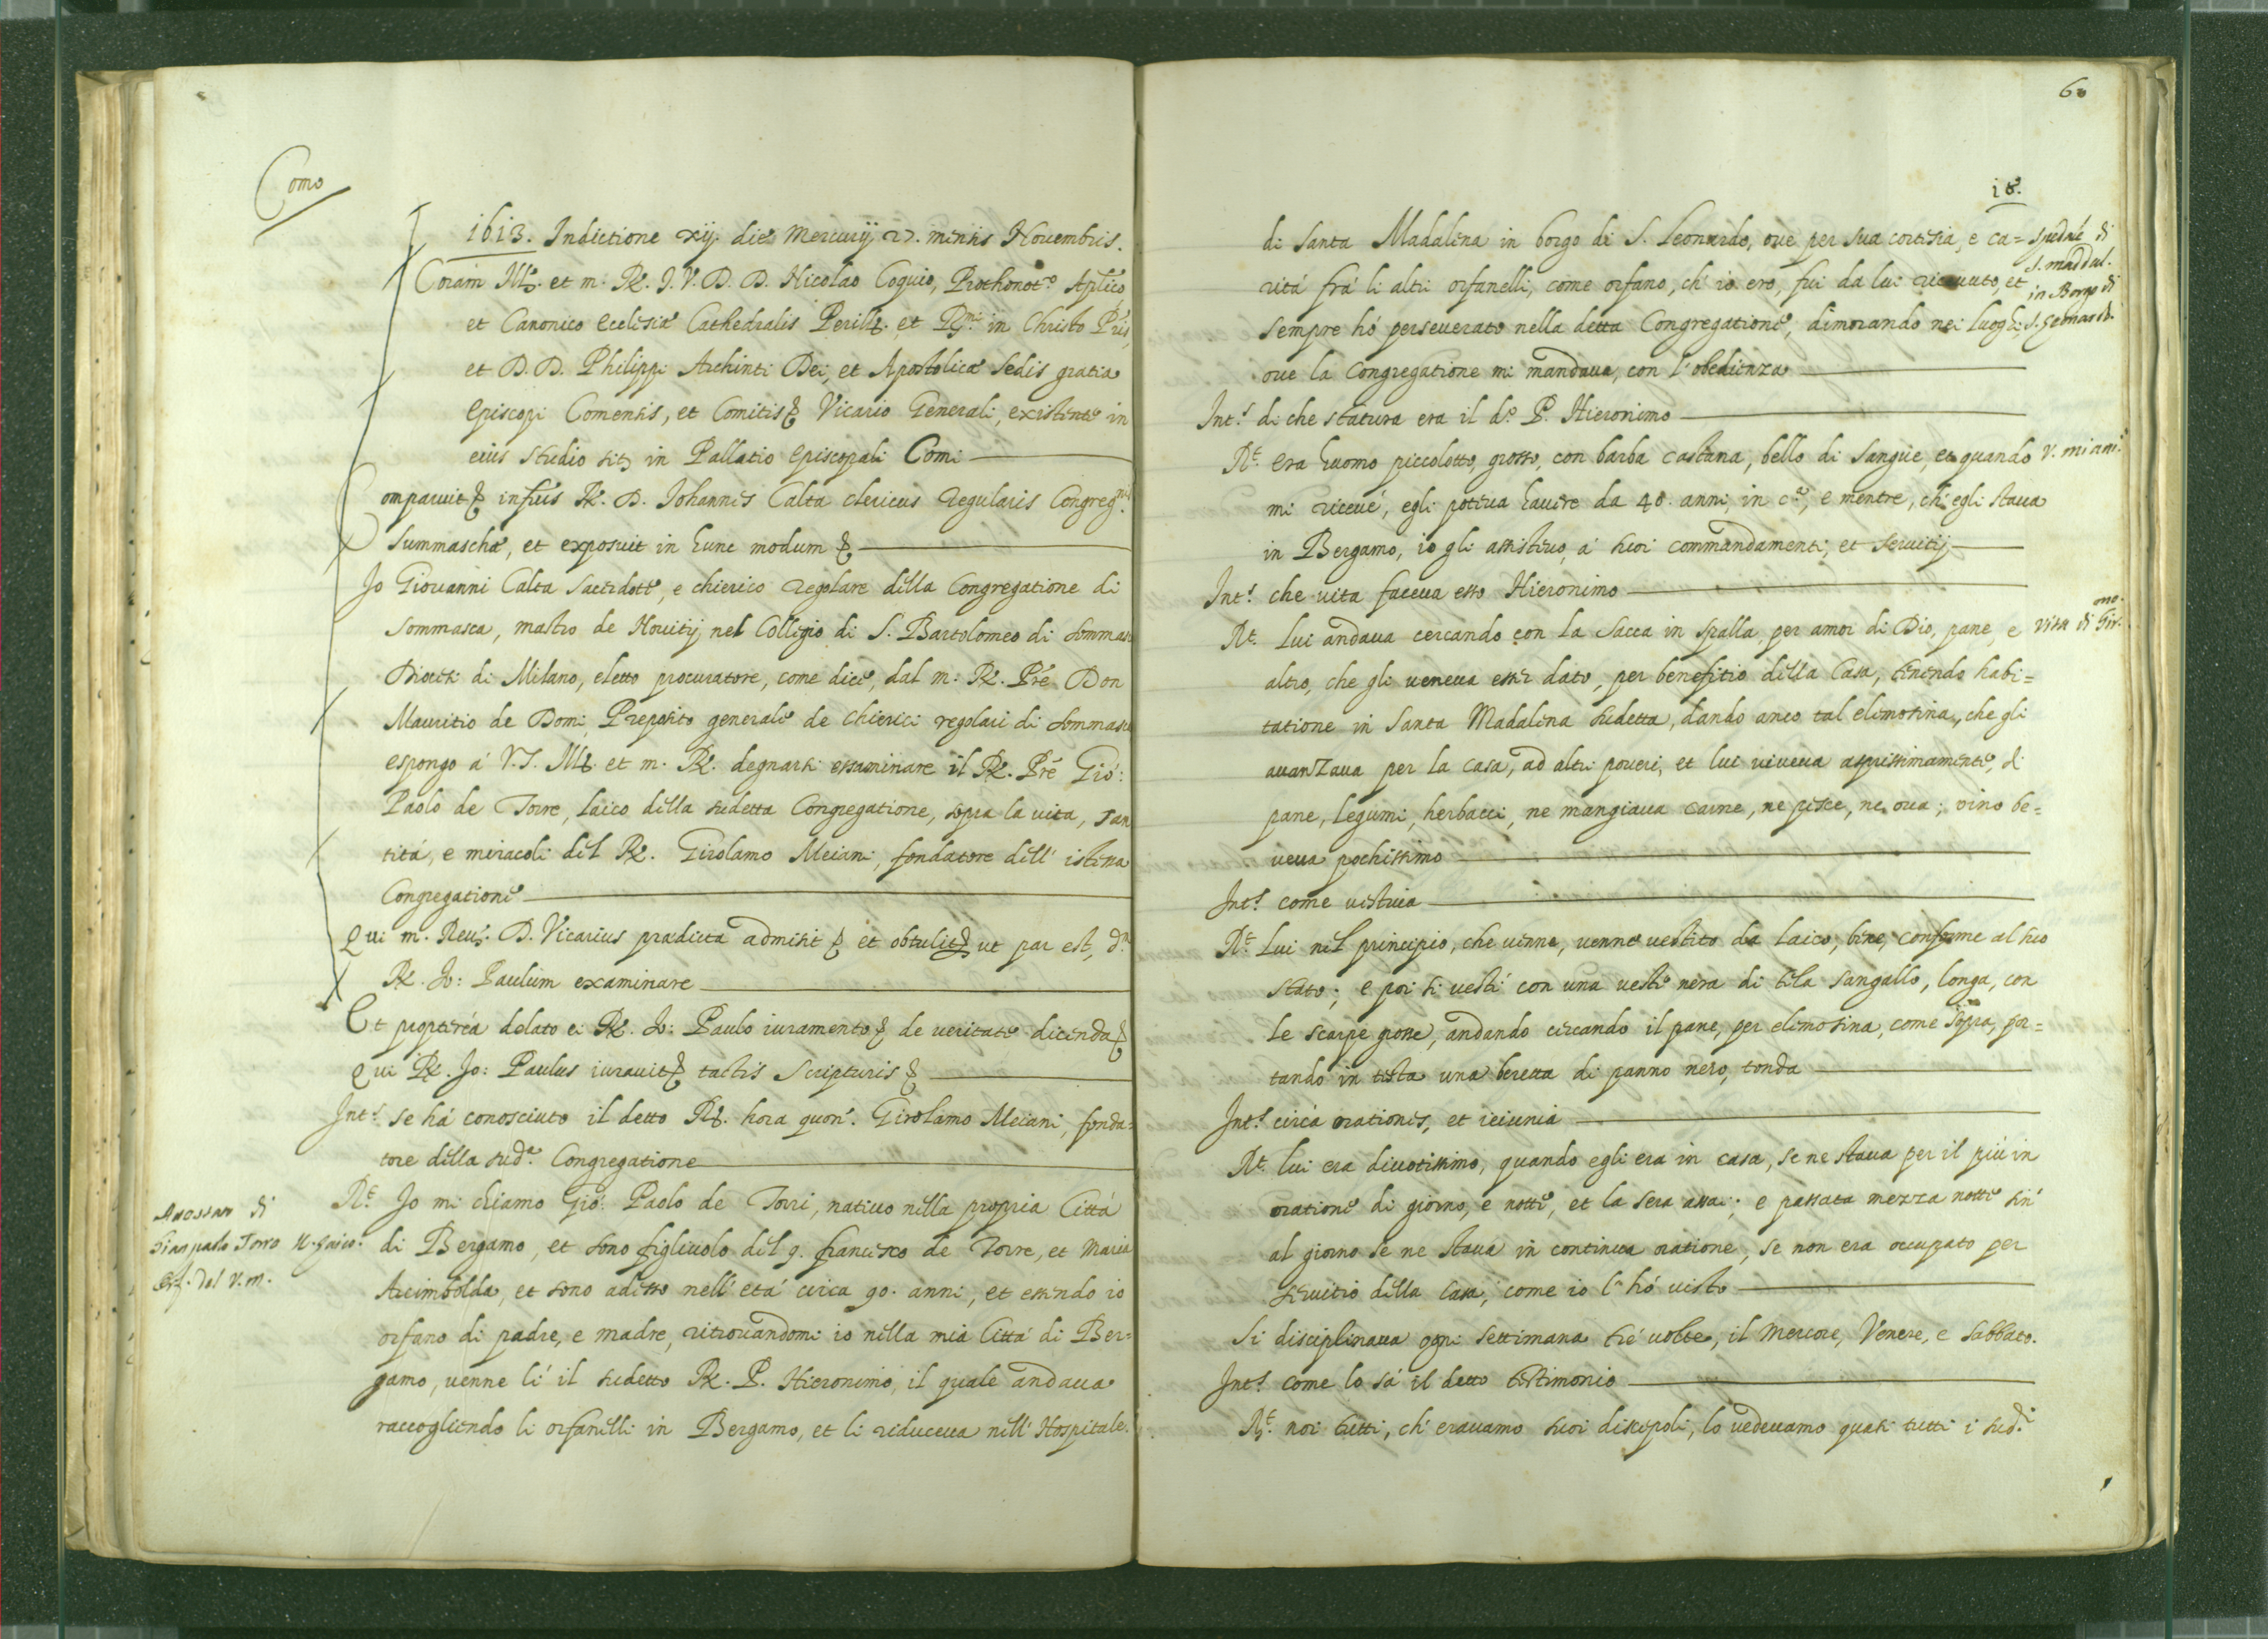 Como
1613. Indictione xij. die Mercurij 27. mensis Novembris.
Coram Ill. et m. R. J. V. D. D. Nicolao Coquio, Prothonot.º Aplico
et Canonico Ecclesiæ Cathedralis Perill. et R.mi in Christo Pris,
et D. D. Philippi Archinti Dei, et Apostolicæ sedis gratia
Episcopi Comensis, et Comitis & Vicario Generali, existente in
eius studio sit. in Pallatio Episcopali Comi
Comparuit & infrus R. D. Johannes Calta clericus Regularis Congreg.nis
Summaschæ, et exposuit in hunc modum &
Jo Giovanni Calta sacerdote, e chierico regolare della Congregatione di
Sommasca, mastro de Novitij nel Collegio di S. Bartolomeo di sommasca
Diocesi di Milano, eletto procuratore, come dice, dal m: R. Pre Don
Mauritio de Domi, Preposito generale de chierici regolari di sommasca
espongo à V. S. Ill. et m. R. degnarsi essaminare il R. Pre Gio:
Paolo de Torre, laico della sudetta Congregatione, sopra la vita, san
tità, e miracoli del R. Girolamo Meiani, fondatore dell' istessa
Congregatione
Qui m. Reu. D. Vicarius prædicta admisit & et obtulit & ut par est, d.m
R. Jo: Paulum examinare
Et propterea delato ei R. Jo: Paulo iuramento & de veritate dicenda &
Qui R. Jo: Paulus iuravit & tactis Scripturis &
Int.s se hà conosciuto il detto R. hora quon. Girolamo Meiani, fonda=
tore della sud.a Congregatione
R.t Jo mi chiamo Gio: Paolo de Torri, nativo nella propria Città
di Bergamo, et sono figliuolo del q. francesco de Torre, et Maria
Arcimbolda, et sono adesso nell' età circa 90. anni, et essendo io
orfano di padre, e madre, ritrovandomi io nella mia Città di Ber=
gamo, venne lì il sudetto R. P. Hieronimo, il quale andava
raccogliendo li orfanelli in Bergamo, et li riduceva nell' Hospitale
di
Gian paolo Torro
del V. m.
60
18.
di Santa Madalena in borgo di S. Leonardo, ove per sua cortesia, e ca=
rità frà li altri orfanelli, come orfano, ch' io ero, fui da lui ricevuto, et
sempre hò perseverato nella detta Congregatione, dimorando nei luoghi,
ove la Congregatione mi mandava, con l' obedienza
spedale di
S. maddal.
in Borgo di
S. Leonardo.
Int.s di che statura era il d.º P. Hieronimo
R.t Era huomo piccolotto, grosso, con barba castana, bello di sangue, et quando
mi riceve, egli poteva havere da 48. anni, in c.a, e mentre, ch' egli stava
in Bergamo, io gli assistevo, à suoi commandamenti, et servitij
V. miani.
Int.s che vita faceva esso Hieronimo
R.t Lui andava cercando con la sacca in spalla, per amor di Dio, pane, e
altro, che gli veneva esser dato, per benefitio della Casa, tenendo habi=
tatione in Santa Madalena sudetta, dando anco tal elimosina, che gli
avanzava per la casa, ad altri poveri, et lui viveva asprissimamente, di
pane, legumi, herbacci, ne mangiava carne, ne pesce, ne ova; vino be=
veva pochissimo
Vita di Gir.mo
Int.s come vestiva
R.t Lui nel principio, che venne, venne vestito da laico, bene, conforme al suo
stato; e poi si vestì con una veste nera di tela sangallo, longa, con
le scarpe grosse, andando cercando il pane, per elimosina, come sopra, por=
tando in testa una beretta di panno nero, tonda
Int.s circa orationes, et ieiunia
R.t lui era divotissimo, quando egli era in casa, se ne stava per il più in
oratione di giorno, e notte, et la sera assai; e passata mezza notte sin'
al giorno se ne stava in continua oratione, se non era occupato per
servitio della casa, come io l' hò visto
Si disciplinava ogni settimana tre volte, il Mercore, Venere, e Sabbato.
Int.s come lo sà il detto testimonio
R.t noi tutti, ch' eravamo suoi discepoli, lo vedevamo quasi tutti i sud.i